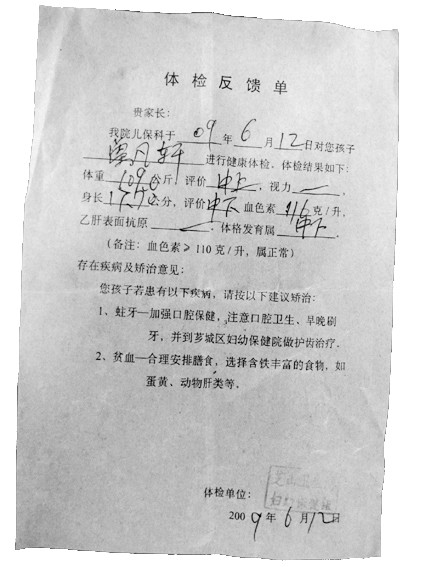 体检反馈单
贵家长：
我院儿保科于 09 年 6 月 12 日对您孩子
凡轩 进行健康体检，体检结果如下：
体重 公斤，评价 中上，视力 —，
身长 公分，评价 中下 血色素 116 克/升，
乙肝表面抗原 —，体格发育属 中下。
（备注：血色素≥110克/升，属正常）
存在疾病及矫治意见：
您孩子若患有以下疾病，请按以下建议矫治：
1、蛀牙—加强口腔保健，注意口腔卫生、早晚刷
牙，并到芗城区妇幼保健院做护齿治疗。
2、贫血—合理安排膳食，选择含铁丰富的食物，如
蛋黄、动物肝类等。
体检单位：
2009 年 6 月 12 日